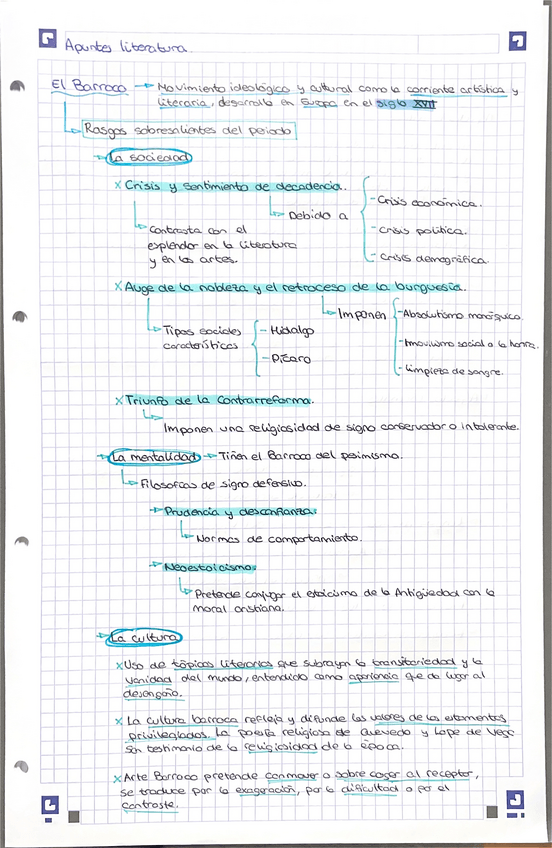 Apuntes literatura.
El Barroco → Movimiento ideológico y cultural como la corriente artística y
literaria, desarrolla en Europa en el siglo XVII
Rasgos sobresalientes del periodo
La sociedad
x Crisis y sentimiento de decadencia.
Debido a
- Crisis económica.
- crisis política.
- Crisis demográfica.
Contrasta con el
esplendor en la literatura
y en las artes.
x Auge de la nobleza y el retroceso de la burguesía.
Tipos sociales
característicos
- Hidalgo
- Pícaro
Imponen
- Absolutismo monárquico.
- Inmovilismo social a la honra.
- Limpieza de sangre.
x Triunfo de la Contrarreforma.
Imponen una religiosidad de signo conservador o intolerante.
La mentalidad → Tiñen el Barroco del pesimismo.
Filosofías de signo defensivo.
Prudencia y desconfianza:
Normas de comportamiento.
Neoestoicismo:
Pretende conjugar el estoicismo de la Antigüedad con la
moral cristiana.
La cultura
x Uso de tópicos literarios que subrayan la transitoriedad y la
vanidad del mundo, entendido como apariencia que da lugar al
desengaño.
x La cultura barroca refleja y difunde los valores de los estamentos
privilegiados. La poesía religiosa de Quevedo y Lope de Vega
son testimonio de la religiosidad de la época.
x Arte Barroco pretende conmover o sobrecoger al receptor,
se traduce por la exageración, por la dificultad o por el
contraste.